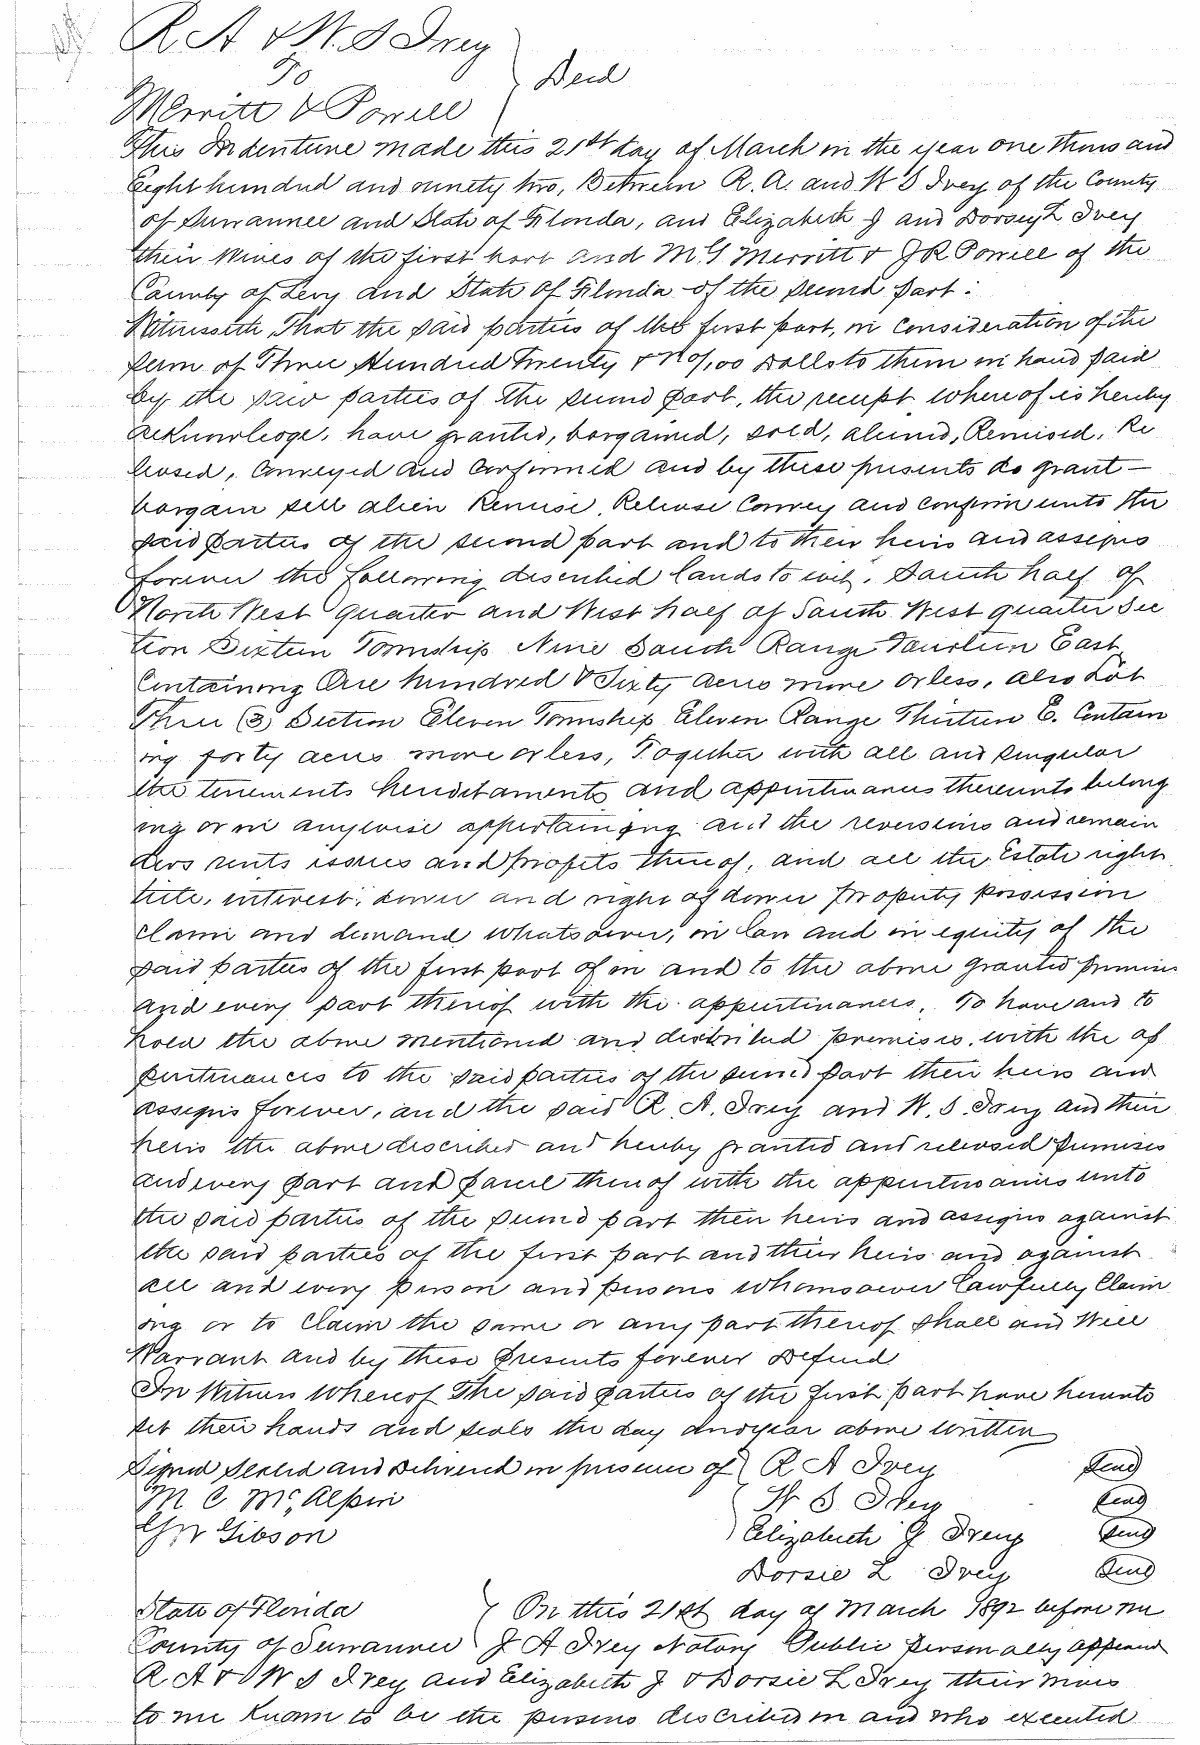 R A & W. S Ivey
To
Deed
Merritt & Powell
This Indenture made this 21st day of March in the year one thousand
Eight hundred and ninety two, Between R. A. and W S Ivey of the County
of Suwannee and State of Florida, and Elizabeth J and Dorsey L Ivey
their Wives of the first part and M G Merritt & J R Powell of the
County of Levy and State of Florida of the second part:
Witnesseth That the said parties of the first part, in consideration of the
sum of Three Hundred Twenty & No/100 Dolls to them in hand paid
by the said parties of the second part, the receipt whereof is hereby
acknowledge, have granted, bargained, sold, aliened, Remised, Re
leased, Conveyed and Confirmed and by these presents do grant —
bargain sell alien Remise, Release Convey and Confirm unto the
said parties of the second part and to their heirs and assigns
forever the following described lands to wit, South half of
North West quarter and West half of South West quarter Sec
tion Sixteen Township Nine South Range Fourteen East
Containing One hundred & Sixty acres more or less, also Lot
Three (3) Section Eleven Township Eleven Range Thirteen E. Contain
ing forty acres more or less, Together with all and singular
the tenements hereditaments and appurtenances thereunto belong
ing or in anywise appertaining and the reversions and remain
ders rents issues and profits thereof, and all the Estate right
title, interest, dower and right of dower property possession
claim and demand whatsoever, in law and in equity of the
said parties of the first part of in and to the above granted premises
and every part thereof with the appurtenances. To have and to
hold the above mentioned and described premises, with the ap
purtenances to the said parties of the second part their heirs and
assigns forever, and the said R. A. Ivey and W. S. Ivey and their
heirs the above described and hereby granted and released premises
and every part and parcel thereof with the appurtenances unto
the said parties of the second part their heirs and assigns against
the said parties of the first part and their heirs and against
all and every person and persons whomsoever lawfully Claim
ing or to Claim the same or any part thereof shall and Will
Warrant and by these presents forever Defend
In Witness Whereof The said parties of the first part have hereunto
set their hands and seals the day and year above written
Signed Sealed and Delivered in presence of R A Ivey Seal
M C McAlpin W S Ivey Seal
G W Gibson Elizabeth J Ivey Seal
Dorsie L Ivey Seal
State of Florida On this 21st day of March 1892 before me
County of Suwannee J A Ivey Notary Public personally appeared
R A & W S Ivey and Elizabeth J & Dorsie L Ivey their wives
to me known to be the persons described in and who executed